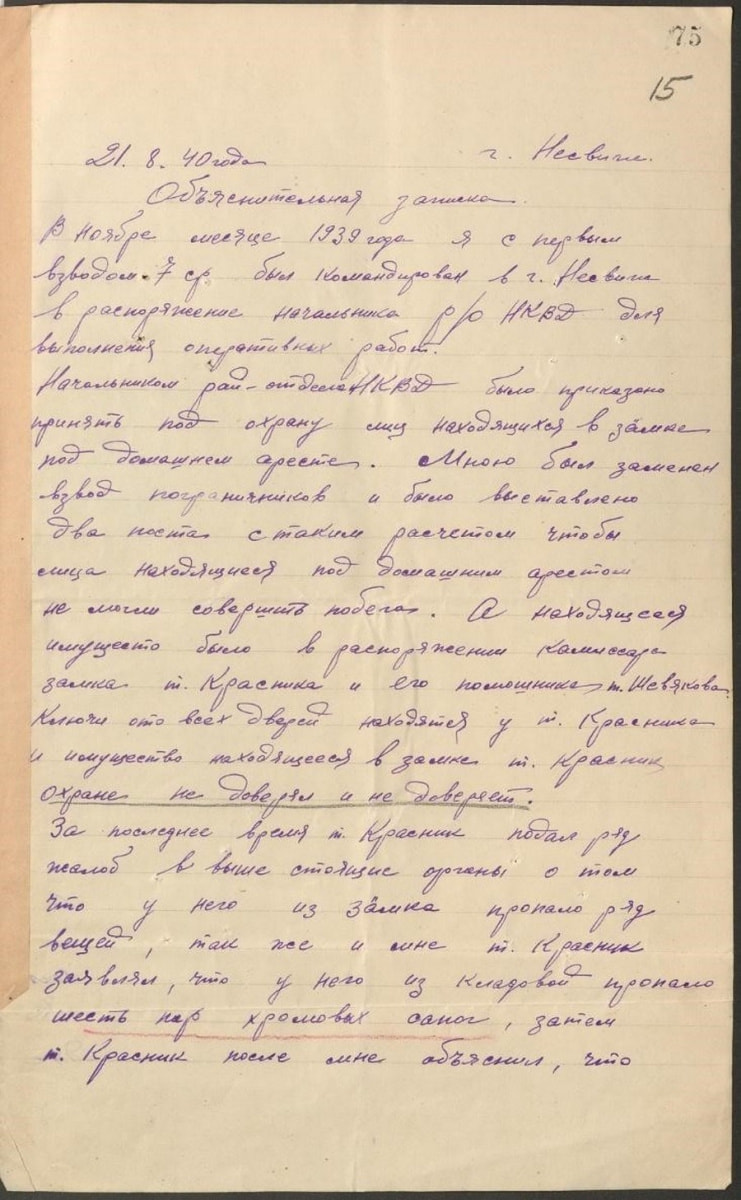 75
15
21. 8. 40 года г. Несвиж.
Объяснительная записка.
В ноябре месяце 1939 года я с первым
взводом 7 ср. был командирован в г. Несвиж
в распоряжение начальника р/о НКВД для
выполнения оперативных работ.
Начальником рай-отдела НКВД было приказано
принять под охрану лиц находящихся в замке
под домашнем аресте. Мною был заменен
взвод пограничников и было выставлено
два поста с таким расчетом чтобы
лица находящиеся под домашним арестом
не могли совершить побега. А находящееся
имущесто было в распоряжении камиссара
замка т. Красника и его помошника т. Шевякова.
Ключи ото всех дверей находятся у т. Красника
и имущество находящееся в замке т. Красник
охране не доверял и не доверяет.
За последнее время т. Красник подал ряд
жалоб в выше стоящие органы о том
что у него из замка пропало ряд
вещей, так же и мне т. Красник
заявлял, что у него из кладовой пропало
шесть пар хромовых сапог, затем
т. Красник после мне объяснил, что